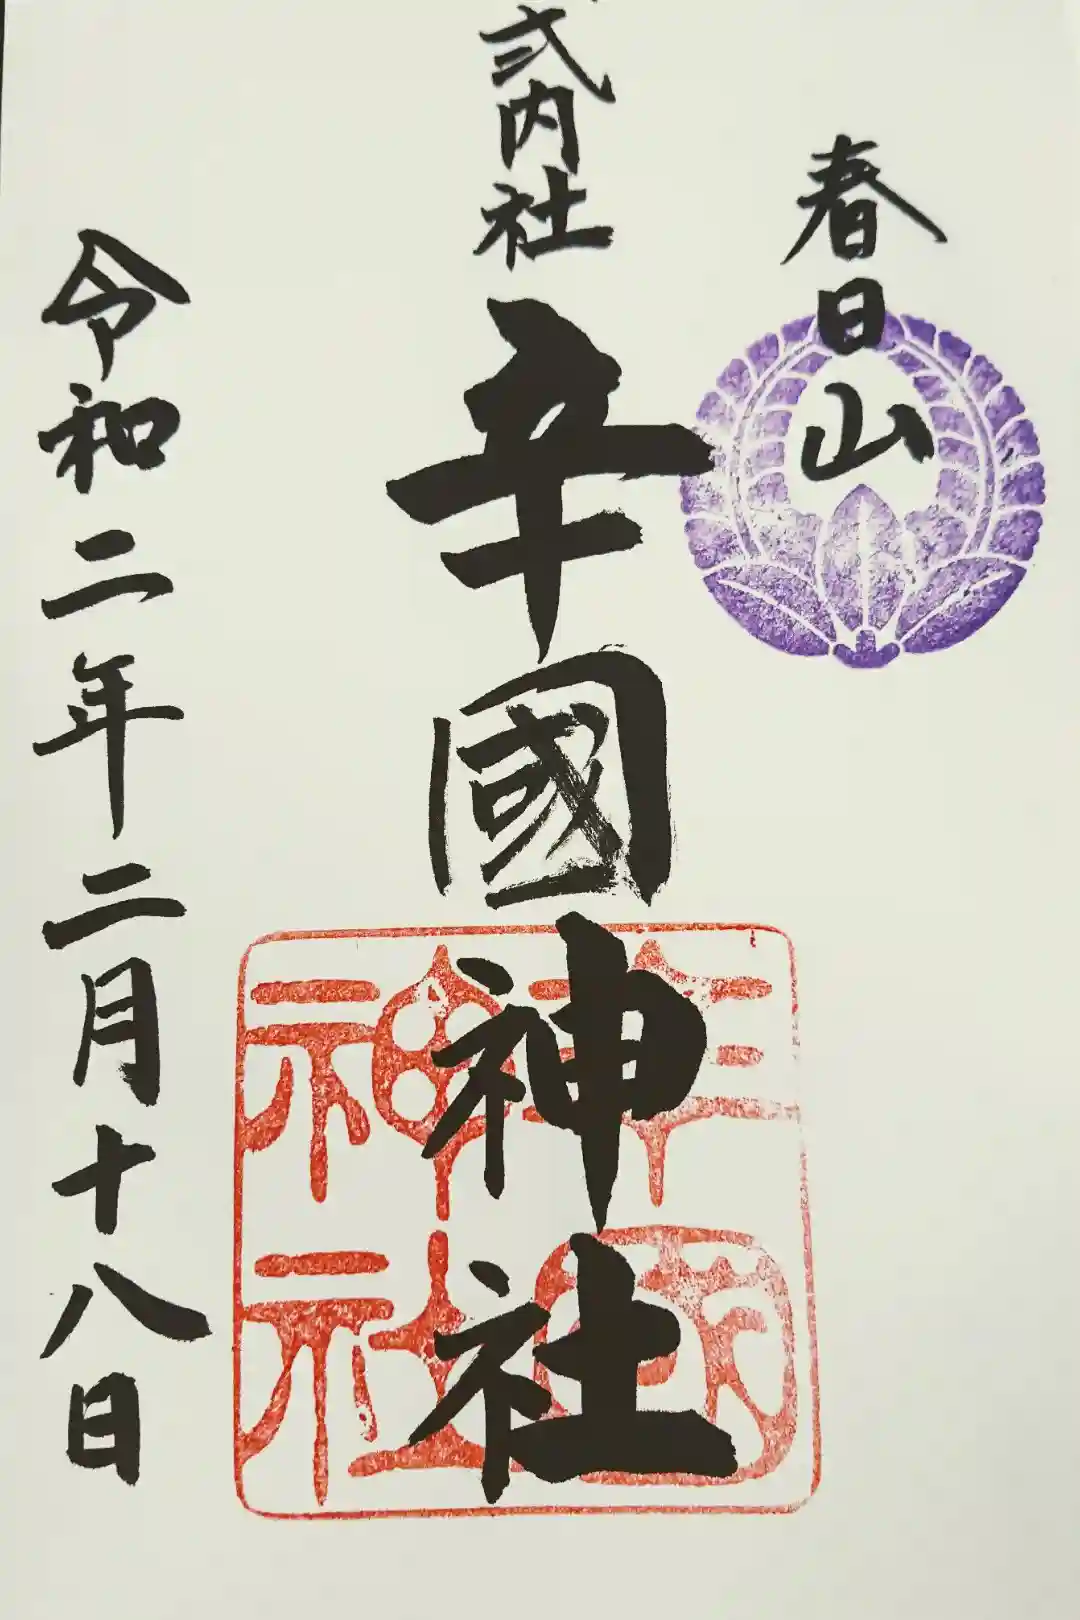 春日山
式内社
辛國神社
辛國神社
令和二年二月十八日